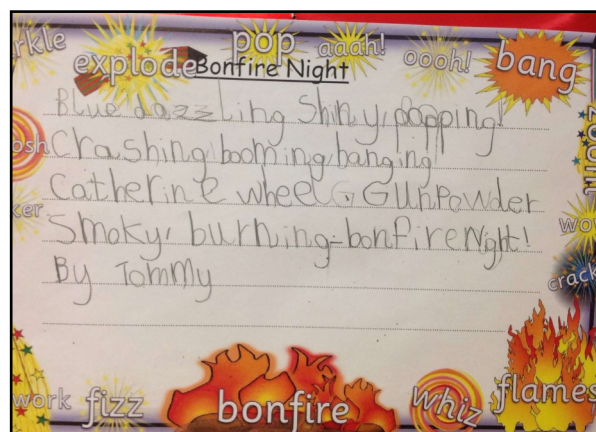 rkle explode pop aaah! oooh! bang
Bonfire Night
Blue dazzling Shiny, popping!
osh Crashing, booming, banging!
Catherine wheel, Gunpowder
Smoky, burning-bonfire Night!
By Tommy
crack
work fizz bonfire whiz flames